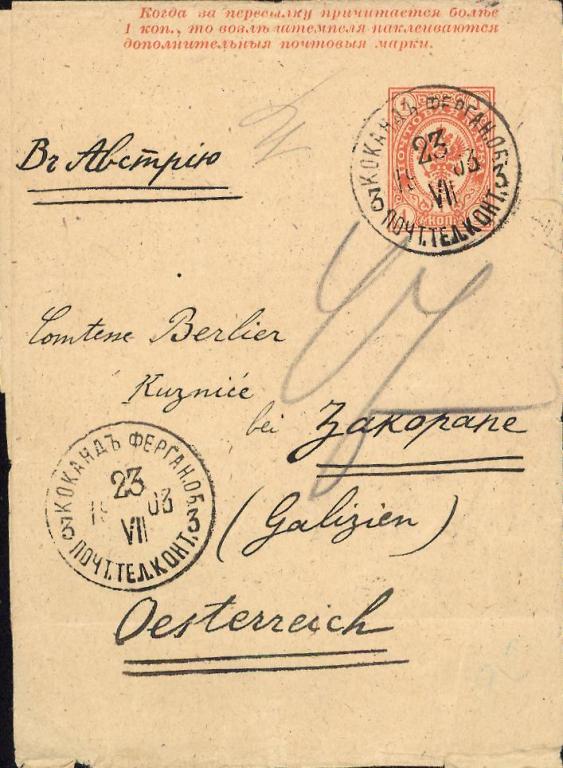 Когда за пересылку причитается болѣе
1 коп., то возлѣ штемпеля наклеиваются
дополнительныя почтовыя марки.
КОКАНДЪ ФЕРГАН.ОБ.
23
1903
VII
3 ПОЧТ.ТЕЛ.КОНТ. 3
Въ Австрію
Comtesse Berlier
Kuźnice
bei Zakopane
КОКАНДЪ ФЕРГАН.ОБ.
23
1903
VII
3 ПОЧТ.ТЕЛ.КОНТ. 3
(Galizien)
Oesterreich